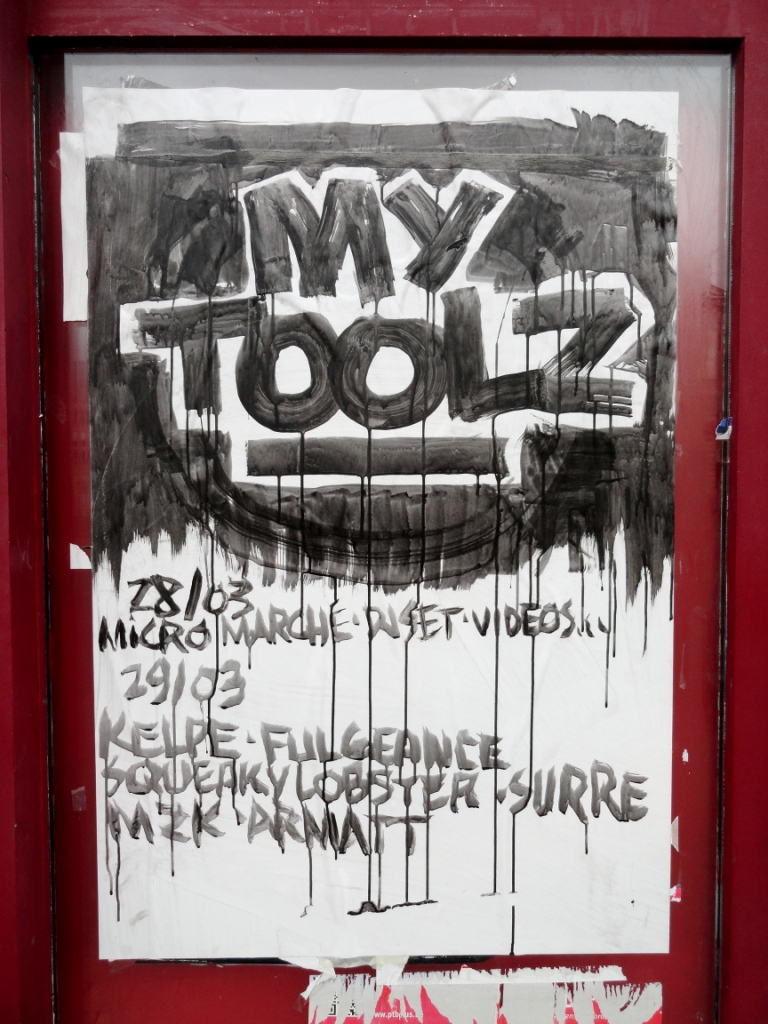 MY
TOOLZ
28/03
MICRO MARCHE · DJSET · VIDEOS...
29/03
KELPE · FULGEANCE
SQUEAKY LOBSTER · SURRE
MZK · ARMATT
www.ptbplus.